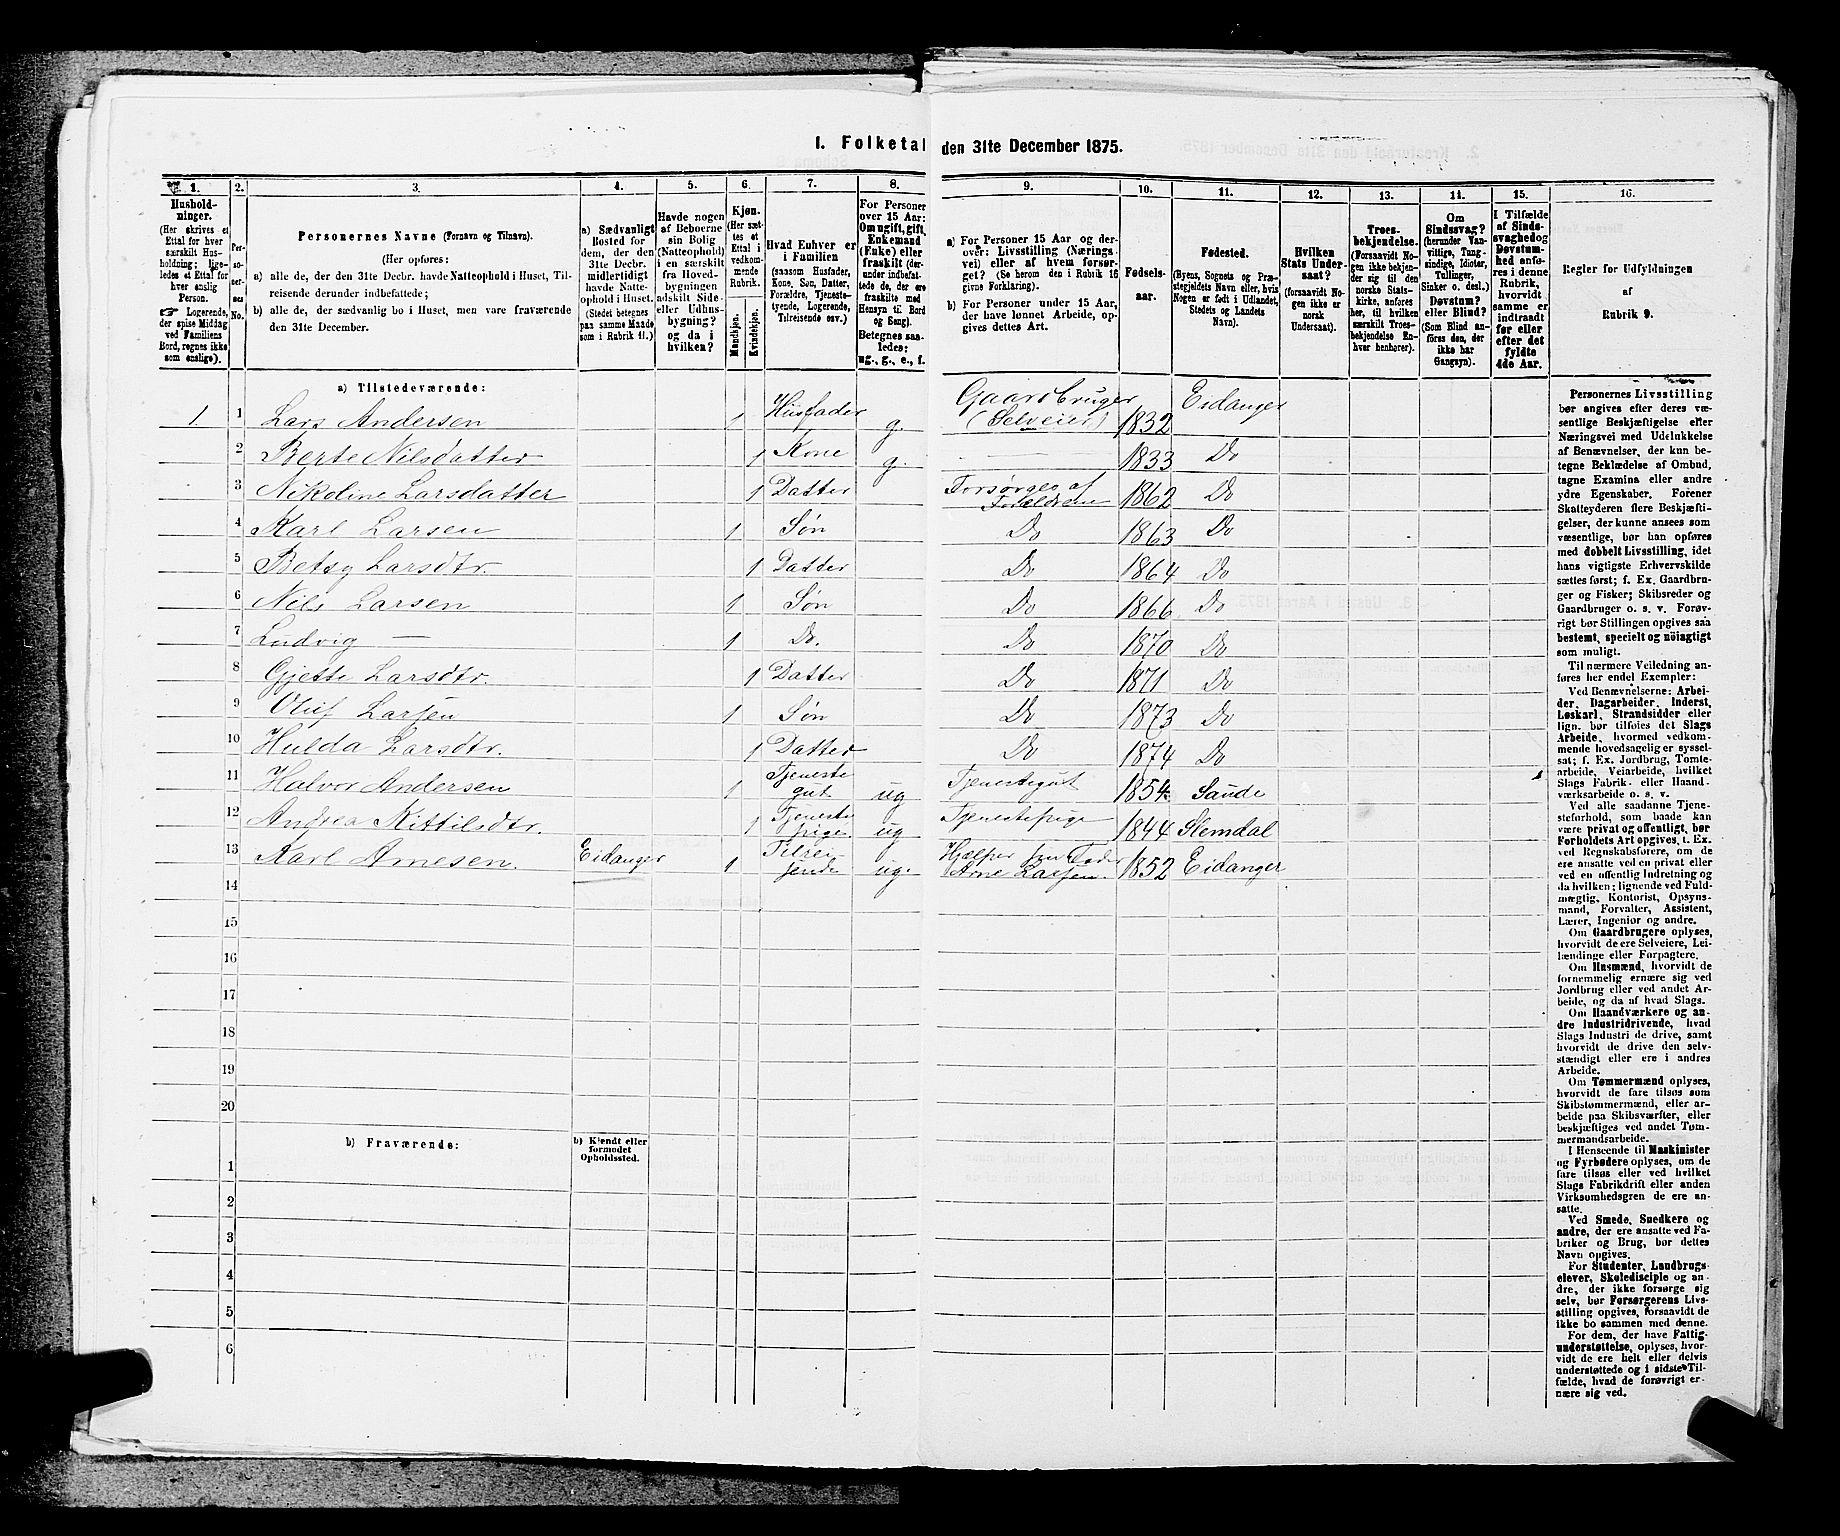 I. Folketal den 31te December 1875.
1. 2. 3. 4. 5. 6. 7. 8. 9. 10. 11. 12. 13. 14. 15. 16.
Hushold-
ninger.
(Her skrives et
Ettal for hver
særskilt Hus-
holdning; lige-
ledes et Ettal for
hver enslig
Person.
☛ Logerende,
der spise Middag
ved Familiens
Bord, regnes ikke
som enslige).
Per-
so-
ner-
nes
No.
Personernes Navne (Fornavn og Tilnavn).
(Her opføres:
a) alle de, der den 31te Decbr. havde Natteophold i Huset, Til-
reisende derunder indbefattede;
b) alle de, der sædvanlig bo i Huset, men vare fraværende
den 31te December.
a) Sædvanligt
Bosted for
dem, der den
31te Decbr.
midlertidigt
havde Natte-
ophold i Huset.
(Stedet betegnes
paa samme Maade
som i Rubrik 11.)
Havde nogen
af Beboerne
sin Bolig
(Natteophold)
i en særskilt
fra Hoved-
bygningen
adskilt Side-
eller Udhus-
bygning?
og da i
hvilken?
Kjøn.
(Her sæt-
tes et
Ettal i
vedkom-
mende
Rubrik.
Mandkjøn.
Kvindekjøn.
Hvad Enhver er
i Familien
(saasom Husfader,
Kone, Søn, Datter,
Forældre, Tjeneste-
tyende, Logerende,
Tilreisende osv.)
For Personer
over 15 Aar:
Om ugift, gift,
Enkemand
(Enke) eller
fraskilt (der-
under indbefat-
tede de, der ere
fraskilte med
Hensyn til Bord
og Seng).
Betegnes saa-
ledes:
ug., g., e., f.
a) For Personer 15 Aar og der-
over: Livsstilling (Nærings-
vei) eller af hvem forsør-
get? (Se herom den i Rubrik 16
givne Forklaring).
b) For Personer under 15 Aar,
der have lønnet Arbeide, op-
gives dettes Art.
Fødsels-
aar.
Fødested.
(Byens, Sognets og Præ-
stegjeldets Navn eller, hvis
Nogen er født i Udlandet,
Stedets og Landets
Navn).
Hvilken
Stats Under-
saat?
(forsaavidt No-
gen ikke er
norsk
Undersaat).
Troes-
bekjendelse.
(Forsaavidt No-
gen ikke bekjen-
der sig til den
norske Stats-
kirke, anføres
her, til hvilken
særskilt Troes-
bekjendelse En-
hver henhører).
Om
Sindssvag?
(herunder Van-
vittige, Tung-
sindige, Idioter,
Tullinger,
Sinker o. desl.)
Døvstum?
eller Blind?
(Som Blind an-
føres den, der
ikke har
Gangsyn).
I Tilfælde
af Sinds-
svaghed og
Døvstum-
hed anfø-
res i denne
Rubrik,
hvorvidt
samme er
indtraadt
før eller
efter det
fyldte
4de Aar.
Regler for Udfyldningen
af
Rubrik 9.
a) Tilstedeværende:
1. 1 Lars Andersen 1 Husfader g. Gaardbruger (Selveier) 1832 Eidanger
2 Berte Nilsdatter 1 Kone g. — — 1833 Do
3 Nikoline Larsdatter 1 Datter Forsørges af Forældrene 1862 Do
4 Karl Larsen 1 Søn Do 1863 Do
5 Betsy Larsdtr. 1 Datter Do 1864 Do
6 Nils Larsen 1 Søn Do 1866 Do
7 Ludvig — 1 Do. Do 1870 Do
8 Gjette Larsdtr. 1 Datter Do 1871 Do
9 Oluf Larsen 1 Søn Do 1873 Do
10 Hulda Larsdtr. 1 Datter Do 1874 Do
11 Halvor Andersen 1 Tjeneste gut ug Tjenestegut 1854 Saude
12 Andrea Kittilsdtr. 1 Tjeneste pige ug Tjenestepige 1844 Slemdal
13 Karl Arnesen. Eidanger 1 Tilrei sende ug. Hjælper sin Fader Arne Larsen. 1852 Eidanger
14
15
16
17
18
19
20
b) Fraværende:
b) Kjendt eller
formodet
Opholdssted.
1
2
3
4
5
6
Personernes Livsstilling
bør angives efter deres væ-
sentlige Beskjæftigelse efter
Næringsvei med Udelukkelse
af Benævnelser, der kun be-
tegne Beklædelse af Ombud,
tagne Examina eller andre
ydre Egenskaber. Forener
Skatteyderen flere Beskjæfti-
gelser, der kunne ansees som
væsentlige, bør han opføres
med dobbelt Livsstilling, idet
hans vigtigste Erhvervskilde
sættes først; f. Ex. Gaardbru-
ger og Fisker; Skibsreder og
Gaardbruger o. s. v. Forøv-
rigt bør Stillingen opgives saa
bestemt, specielt og nöiagtigt
som muligt.
Til nærmere Veiledning an-
føres her endel Exempler:
Ved Benævnelserne: Arbei-
der, Dagarbeider, Inderst,
Løskarl, Strandsidder eller
lign. bør tilføies det Slags
Arbeide, hvormed vedkom-
mende hovedsagelig er syssel-
sat; f. Ex. Jordbrug, Tomte-
arbeide, Veiarbeide, hvilket
Slags Fabrik- eller Haand-
værksarbeide o. s. v.
Ved alle saadanne Tjene-
steforhold, som baade kan
være privat og offentligt, bør
Forholdets Art opgives, t. Ex.
ved Regnskabsførere, om de
ere ansatte ved en privat eller
ved en offentlig Indretning og
da hvilken; lignende ved Fuld-
mægtig, Kontorist, Opsyns-
mand, Forvalter, Assistent,
Lærer, Ingeniør og andre.
Om Gaardbrugere oplyses,
hvorvidt de ere Selveiere, Lei-
lændinge eller Forpagtere.
Om Husmænd, hvorvidt de
fornemmelig ernære sig ved
Jordbrug eller ved andet Ar-
beide, og da af hvad Slags.
Om Haandværkere og an-
dre Industridrivende, hvad
Slags Industri de drive, samt
hvorvidt de drive den selv-
stændigt eller ere i andres
Arbeide.
Om Tømmermænd oplyses,
hvorvidt de fare tilsøs som
Skibstømmermænd, eller ar-
beide paa Skibsværfter, eller
beskjæftiges ved andet Tøm-
mermandsarbeide.
I Henseende til Maskinister
og Fyrbødere oplyses, om de
fare tilsøs eller ved hvilket
Slags Fabrikdrift eller anden
Virksomhedsgren de ere an-
satte.
Ved Smede, Snedkere og
andre, der ere ansatte ved Fa-
briker og Brug, bør dettes
Navn opgives.
For Studenter, Landbrugs-
elever, Skoledisciple og an-
dre, der ikke forsørge sig
selv, bør Forsørgerens Livs-
stilling opgives, forsaavidt de
ikke bo sammen med denne.
For dem, der have Fattig-
understøttelse, oplyses, hvor-
vidt de ere helt eller delvis
understøttede og i sidste Til-
fælde, hvad de forøvrigt er-
nære sig ved.